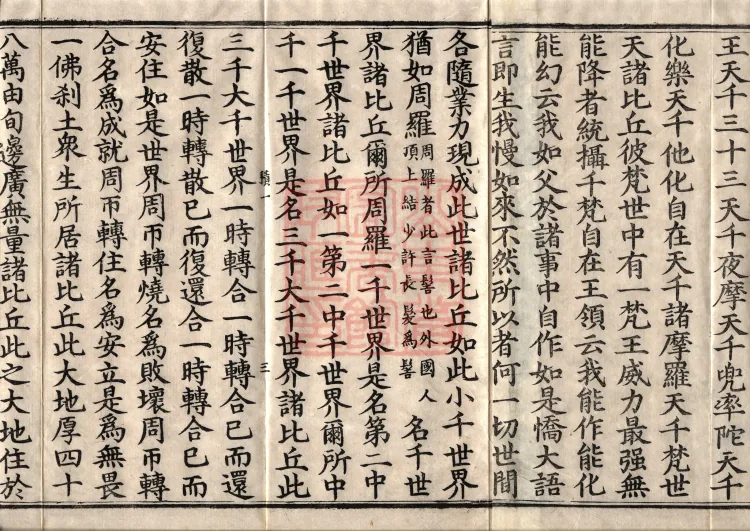 王天千三十三天千夜摩天千兜率陀天千
化樂天千他化自在天千諸摩羅天千梵世
天諸比丘彼梵世中有一梵王威力最强無
能降者統攝千梵自在王領云我能作能化
能幻云我如父於諸事中自作如是憍大語
言即生我慢如來不然所以者何一切世間
各隨業力現成此世諸比丘如此小千世界
猶如周羅周羅者此言髻也外國人頂上結少許長髮爲髻名千世
界諸比丘爾所周羅一千世界是名第二中
千世界諸比丘如一第二中千世界爾所中
千一千世界是名三千大千世界諸比丘此
一 三
三千大千世界一時轉合一時轉合已而還
復散一時轉散已而復還合一時轉合已而
安住如是世界周帀轉燒名爲敗壞周帀轉
合名爲成就周帀轉住名爲安立是爲無畏
一佛刹土衆生所居諸比丘此大地厚四十
八萬由旬邊廣無量諸比丘此之大地住於